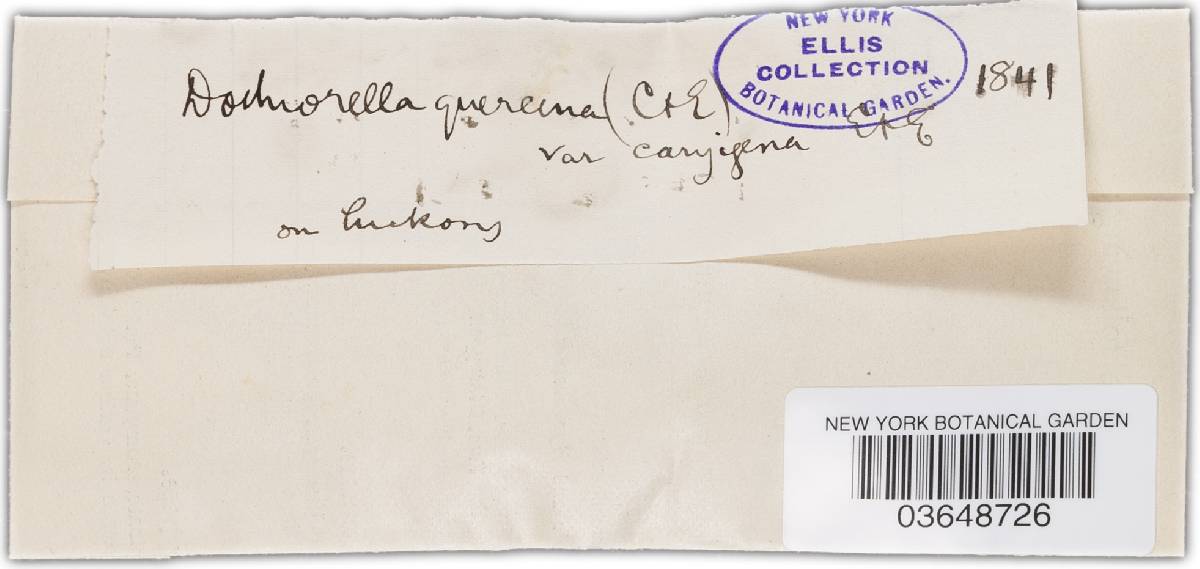 NEW YORK
ELLIS
COLLECTION
BOTANICAL GARDEN.
1841
Dothiorella quercina (C & E)
var caryigena E & E
on
NEW YORK BOTANICAL GARDEN
03648726